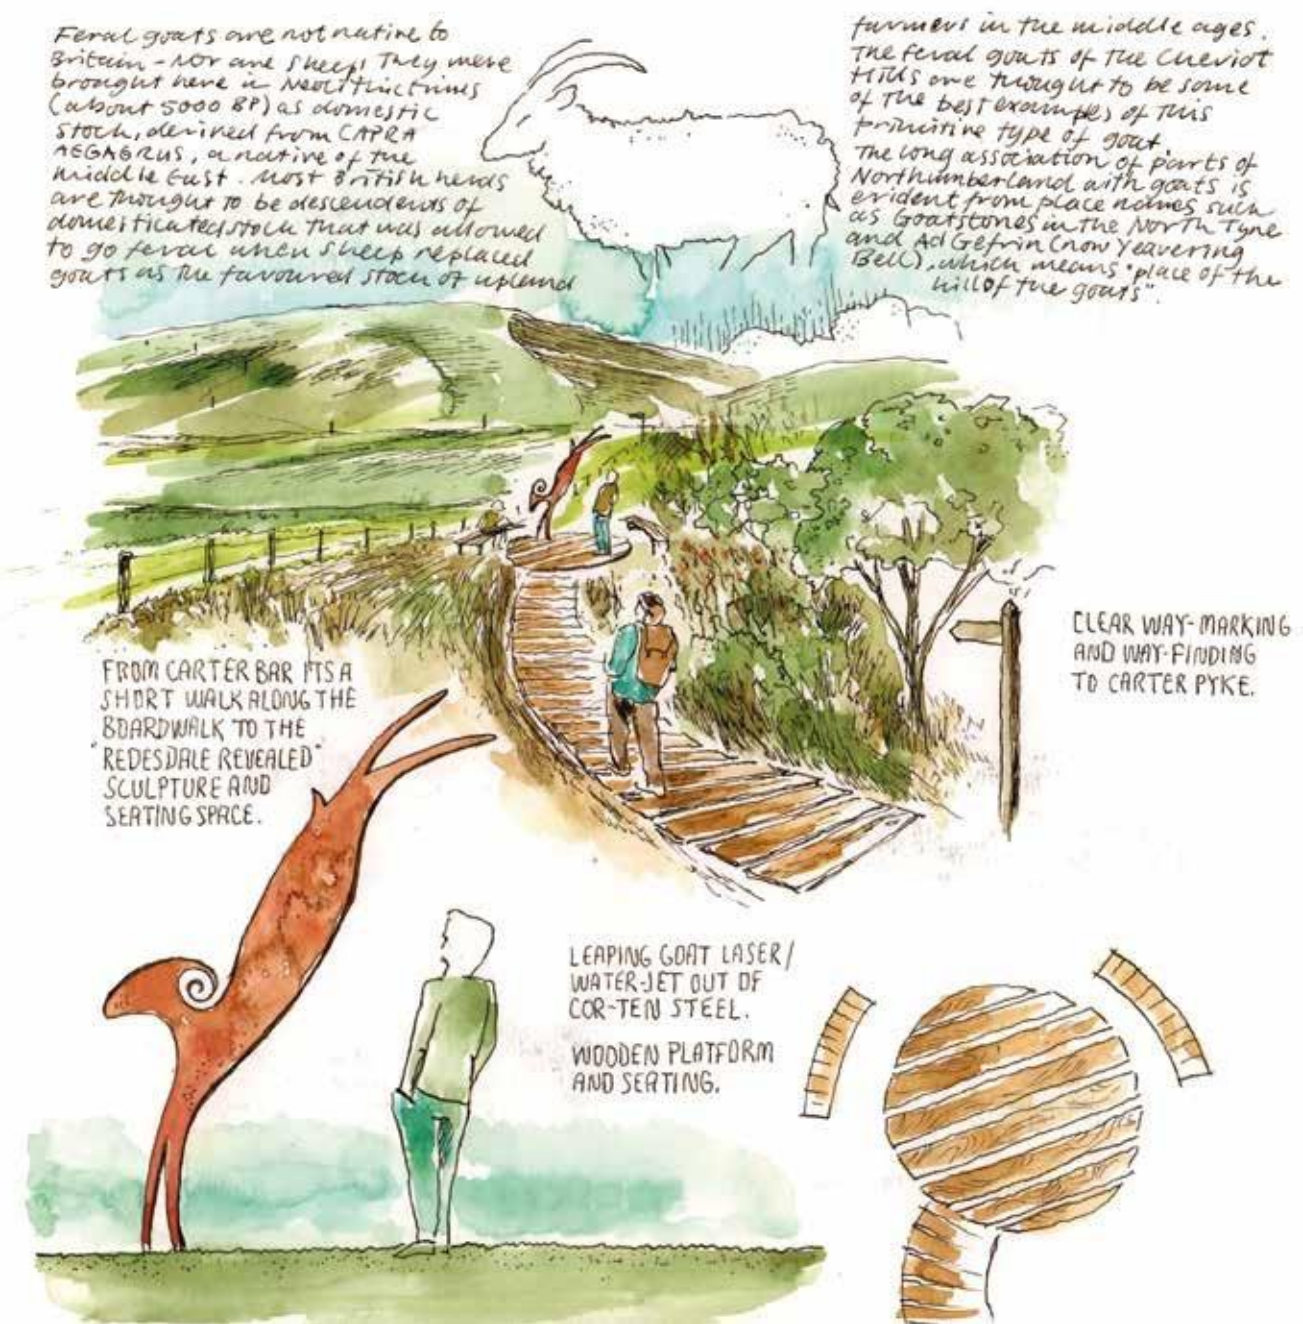 Feral goats are not native to
Britain - Nor are sheep! They were
brought here in Neolithic times
(about 5000 BP) as domestic
stock, derived from CAPRA
AEGAGRUS, a native of the
middle East. Most British herds
are thought to be descendents of
domesticated stock that was allowed
to go feral when sheep replaced
goats as the favoured stock of upland
farmers in the middle ages.
The feral goats of the Cheviot
Hills are thought to be some
of the best examples of this
primitive type of goat
The long association of parts of
Northumberland with goats is
evident from place names such
as Goatstones in the North Tyne
and Ad Gefrin (now Yeavering
Bell), which means "place of the
hill of the goats".
CLEAR WAY-MARKING
AND WAY-FINDING
TO CARTER PYKE.
FROM CARTER BAR ITS A
SHORT WALK ALONG THE
BOARDWALK TO THE
"REDESDALE REVEALED"
SCULPTURE AND
SEATING SPACE.
LEAPING GOAT LASER/
WATER-JET OUT OF
COR-TEN STEEL.
WOODEN PLATFORM
AND SEATING.